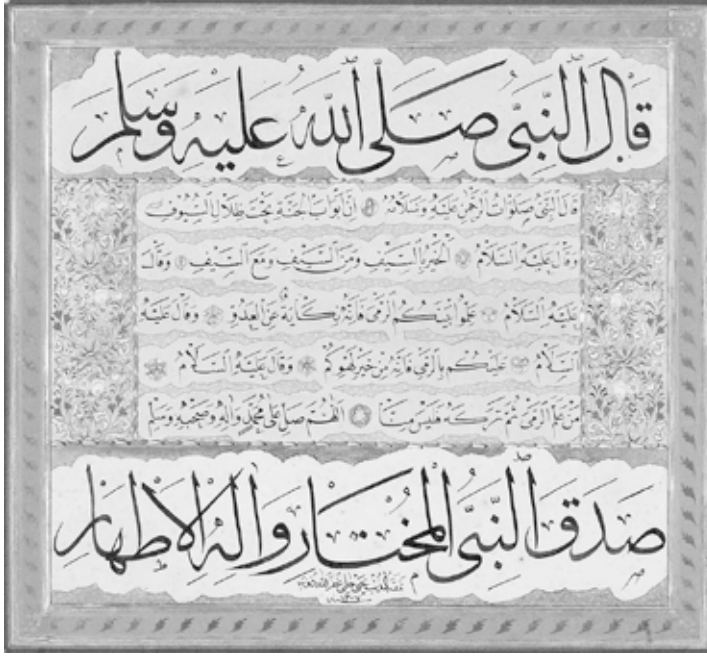 قَالَ النَّبِيُّ صَلَّى اللّٰهُ عَلَيْهِ وَسَلَّمَ
قال النبي صلوات الرحمن عليه وسلامه ان ابواب الجنة تحت ظلال السيوف
وقال عليه السلام الخير بالسيف ومن السيف ومع السيف وقال
عليه السلام علموا بنيكم الرمي فانه نكاية عن العدو وقال عليه
السلام عليكم بالرمي فانه من خير لهوكم وقال عليه السلام
من علم الرمي ثم تركه فليس منا اللهم صل على محمد واله وصحبه وسلم
صَدَقَ النَّبِيُّ الْمُخْتَارُ وَآلِهِ الْأَطْهَارِ